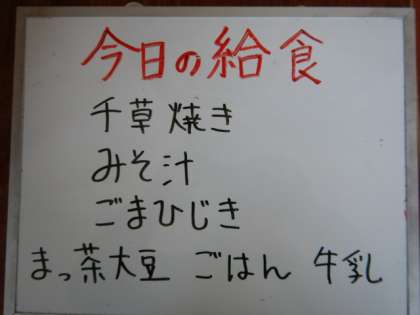 今日の給食
千草焼き
みそ汁
ごまひじき
まっ茶大豆 ごはん 牛乳